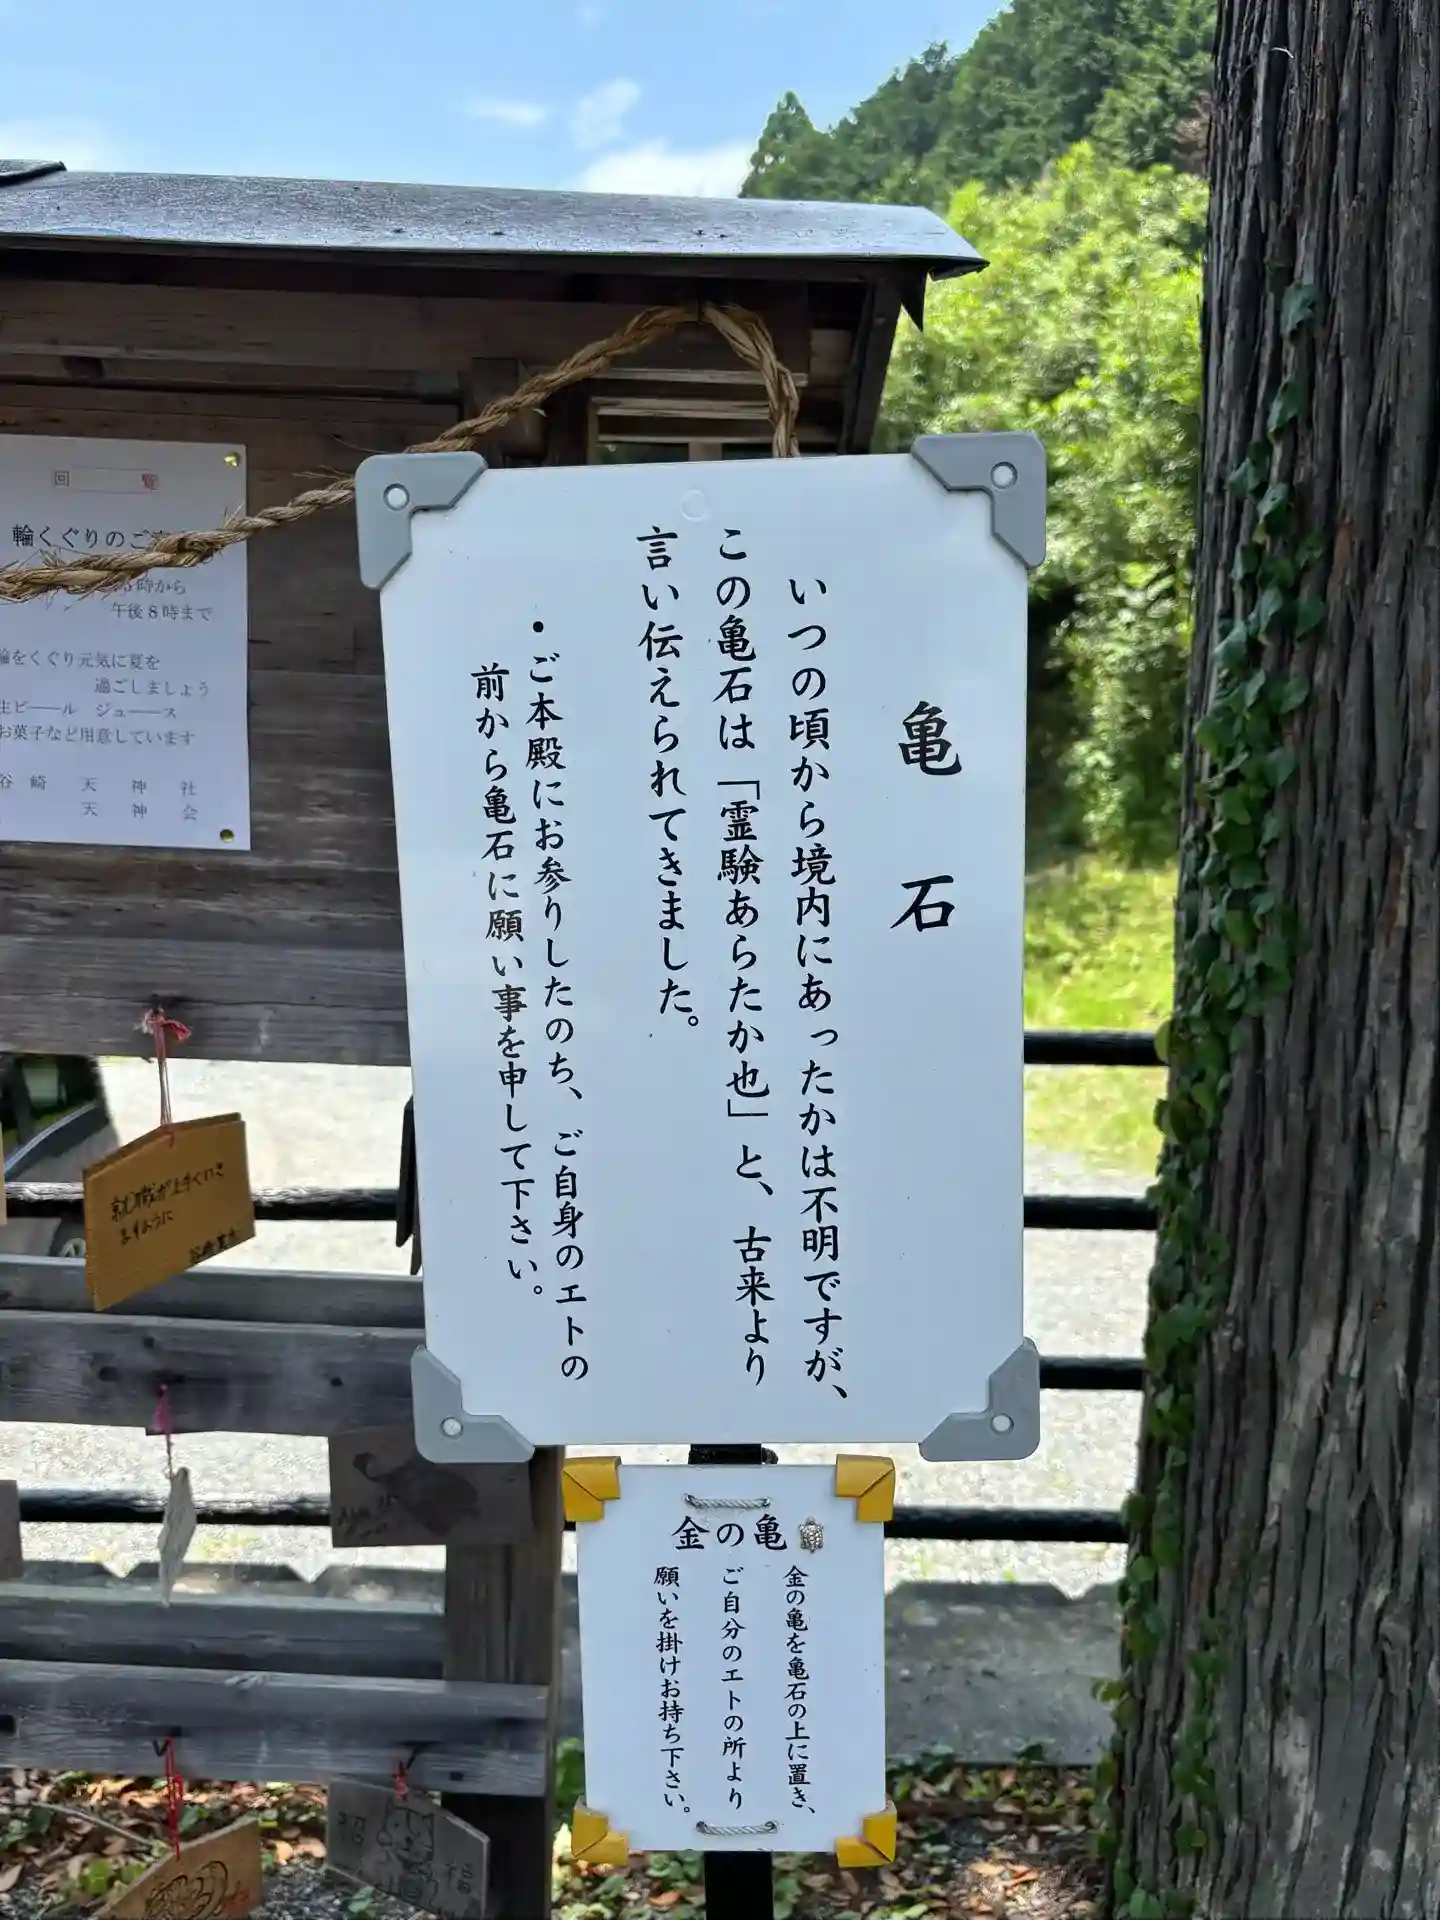 亀石
いつの頃から境内にあったかは不明ですが、
この亀石は「霊験あらたか也」と、古来より
言い伝えられてきました。
・ご本殿にお参りしたのち、ご自身のエトの
前から亀石に願い事を申して下さい。
金の亀
金の亀を亀石の上に置き、
ご自分のエトの所より
願いを掛けお持ち下さい。
回覧
輪くぐりのご
時から
午後8時まで
輪をくぐり元気に夏を
過ごしましょう
生ビール ジュース
お菓子など用意しています
谷崎天神社
天神会
就職が上手くいき
ますように
招福